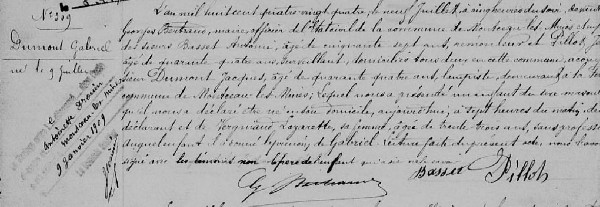 N° 309
Dumont Gabriel
né le 9 Juillet
Antoinette
Montceau les Mines
9 janvier 1909
L'an mil huit cent quatre vingt quatre, le neuf Juillet, à cinq heures du soir, devant
Georges Bertrand, maire, officier de l'Etat civil de la commune de Montceau les Mines
des sieurs Basset Antoine, âgé de cinquante sept ans, et Pillot
âgé de quarante quatre ans, surveillant, domiciliés tous deux en cette commune, a
Dumont Jacques, âgé de quarante quatre ans, lampiste, demeurant à la
commune de Montceau les Mines, lequel nous a présenté un enfant du sexe masculin
qu'il nous a déclaré être né en son domicile, aujourd'hui, à sept heures du matin, de
déclarant et de Lazarette, sa femme, âgée de trente trois ans, sans profession
auquel enfant il donne le prénom de Gabriel. Lecture faite du présent acte, nous l'avons
signé avec les témoins non le père de l'enfant
G. Bertrand Basset Pillot